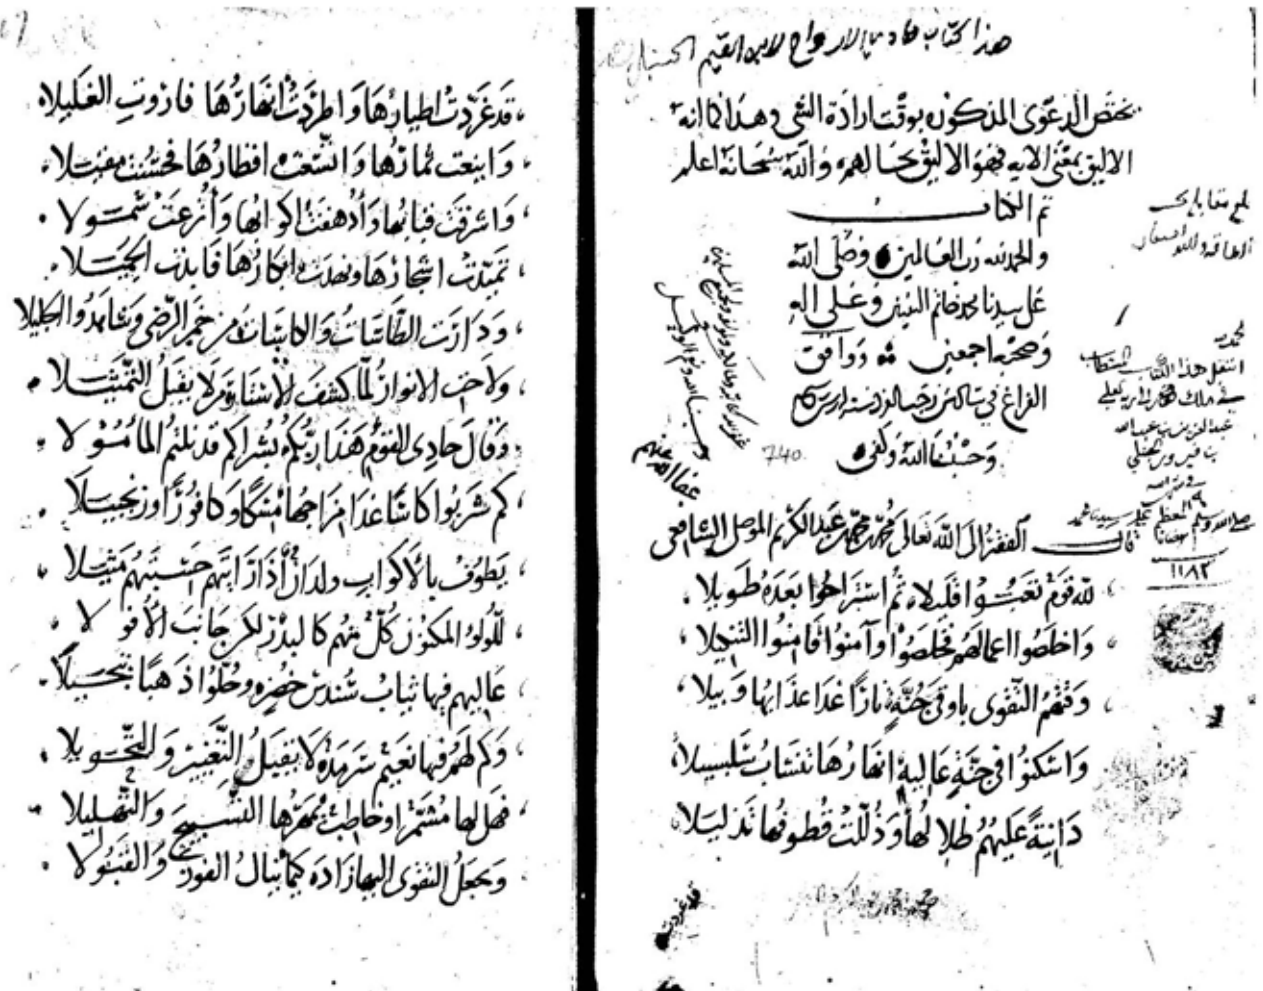 هذا كتاب حادي الارواح لابن القيم الحنبلي
يختص الدعوى المذكوره بوقت ارادة الشي وهذا كما انه
الاليق بمعنى الايه فهو الاليق بحالهم والله سبحانه اعلم
تم الكتاب
والحمد لله رب العالمين وصلى الله
على سيدنا محمد خاتم النبيين وعلى اله
وصحبه اجمعين ووافق
الفراغ في
وحسبنا الله وكفى
740
غفر الله لكاتبه
حسبنا الله ونعم الوكيل
عفا الله عنهم
بلغ مقابلة بحسب
الطاقة ولله
الحمد لله
انتقل هذا الكتاب المستطاب
في ملك
عبد العزيز بن عبد الله
بن فيروز الحنبلي
صلى الله وسلم
١١٨٢
قال الفقير الى الله تعالى محمد بن محمد بن عبد الكريم الموصلي الشافعي
لله قوم تعبوا قليلا ثم استراحوا بعده طويلا
واخلصوا اعمالهم فخلصوا وآمنوا فامنوا التنكيلا
وقتهم التقوى باوقى جنة نارا غدا عذابها وبيلا
واسكنوا في جنة عالية انهارها تنساب سلسبيلا
دانية عليهم ظلالها وذللت قطوفها تذليلا
قد غردت
قد غردت اطيارها واطردت انهارها فاروت الغليلا
واينعت ثمارها واتسعت اقطارها فحسنت مقيلا
واشرقت قبابها وأدهقت اكوابها وأترعت شمولا
تميدت اشجارها ونهدت ابكارها فابدت الجميلا
ودارت الطاسات والكاسات من خمر الرضى وشاهدوا الجليلا
ولاحت الانوار لما كشف الاستار من لا يقبل التمثيلا
وقال حادي القوم هذا ربكم بشراكم قد نلتم المأمولا
كم شربوا كاسا غدا مزاجها مسكا وكافورا وزنجبيلا
يطوف بالاكواب ولدان اذا رايتهم حسبتهم مثيلا
للولو المكنون كل منهم كالبدر لكن جانب الأفولا
عاليهم فيها ثياب سندس خضر وحلوا ذهبا
وكم لهم فيها نعيم سرمد لا يقبل التغيير والتحويلا
فهل لها مشمر او خاطب مهرها التسبيح والتهليلا
ويجعل التقوى اليها زاده كيما ينال الفوز والقبولا